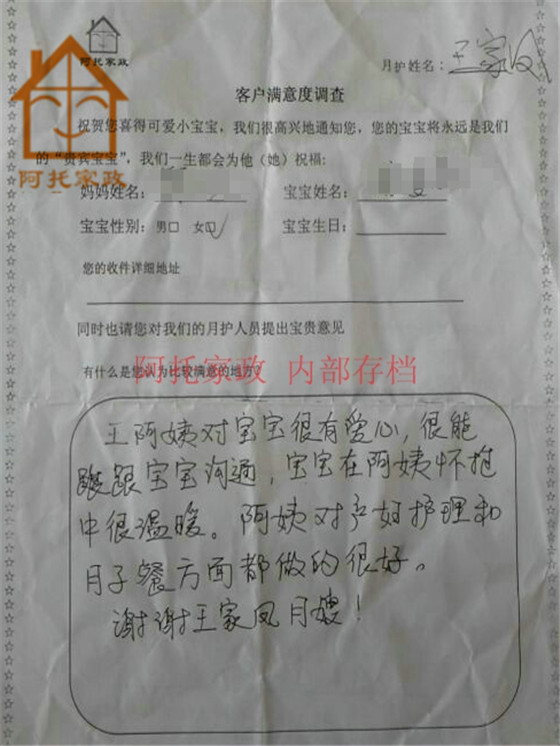 阿托家政
月护姓名：王家凤
客户满意度调查
祝贺您喜得可爱小宝宝，我们很高兴地通知您，您的宝宝将永远是我们
的“贵宾宝宝”，我们一生都会为他（她）祝福：
阿托家政
妈妈姓名：
宝宝姓名：
宝宝性别：男□ 女□√
宝宝生日：
您的收件详细地址
同时也请您对我们的月护人员提出宝贵意见
有什么是您认为比较满意的地方？
阿托家政 内部存档
王阿姨对宝宝很有爱心，很能
跟宝宝沟通，宝宝在阿姨怀抱
中很温暖。阿姨对产妇护理和
月子餐方面都做的很好。
谢谢王家凤月嫂！